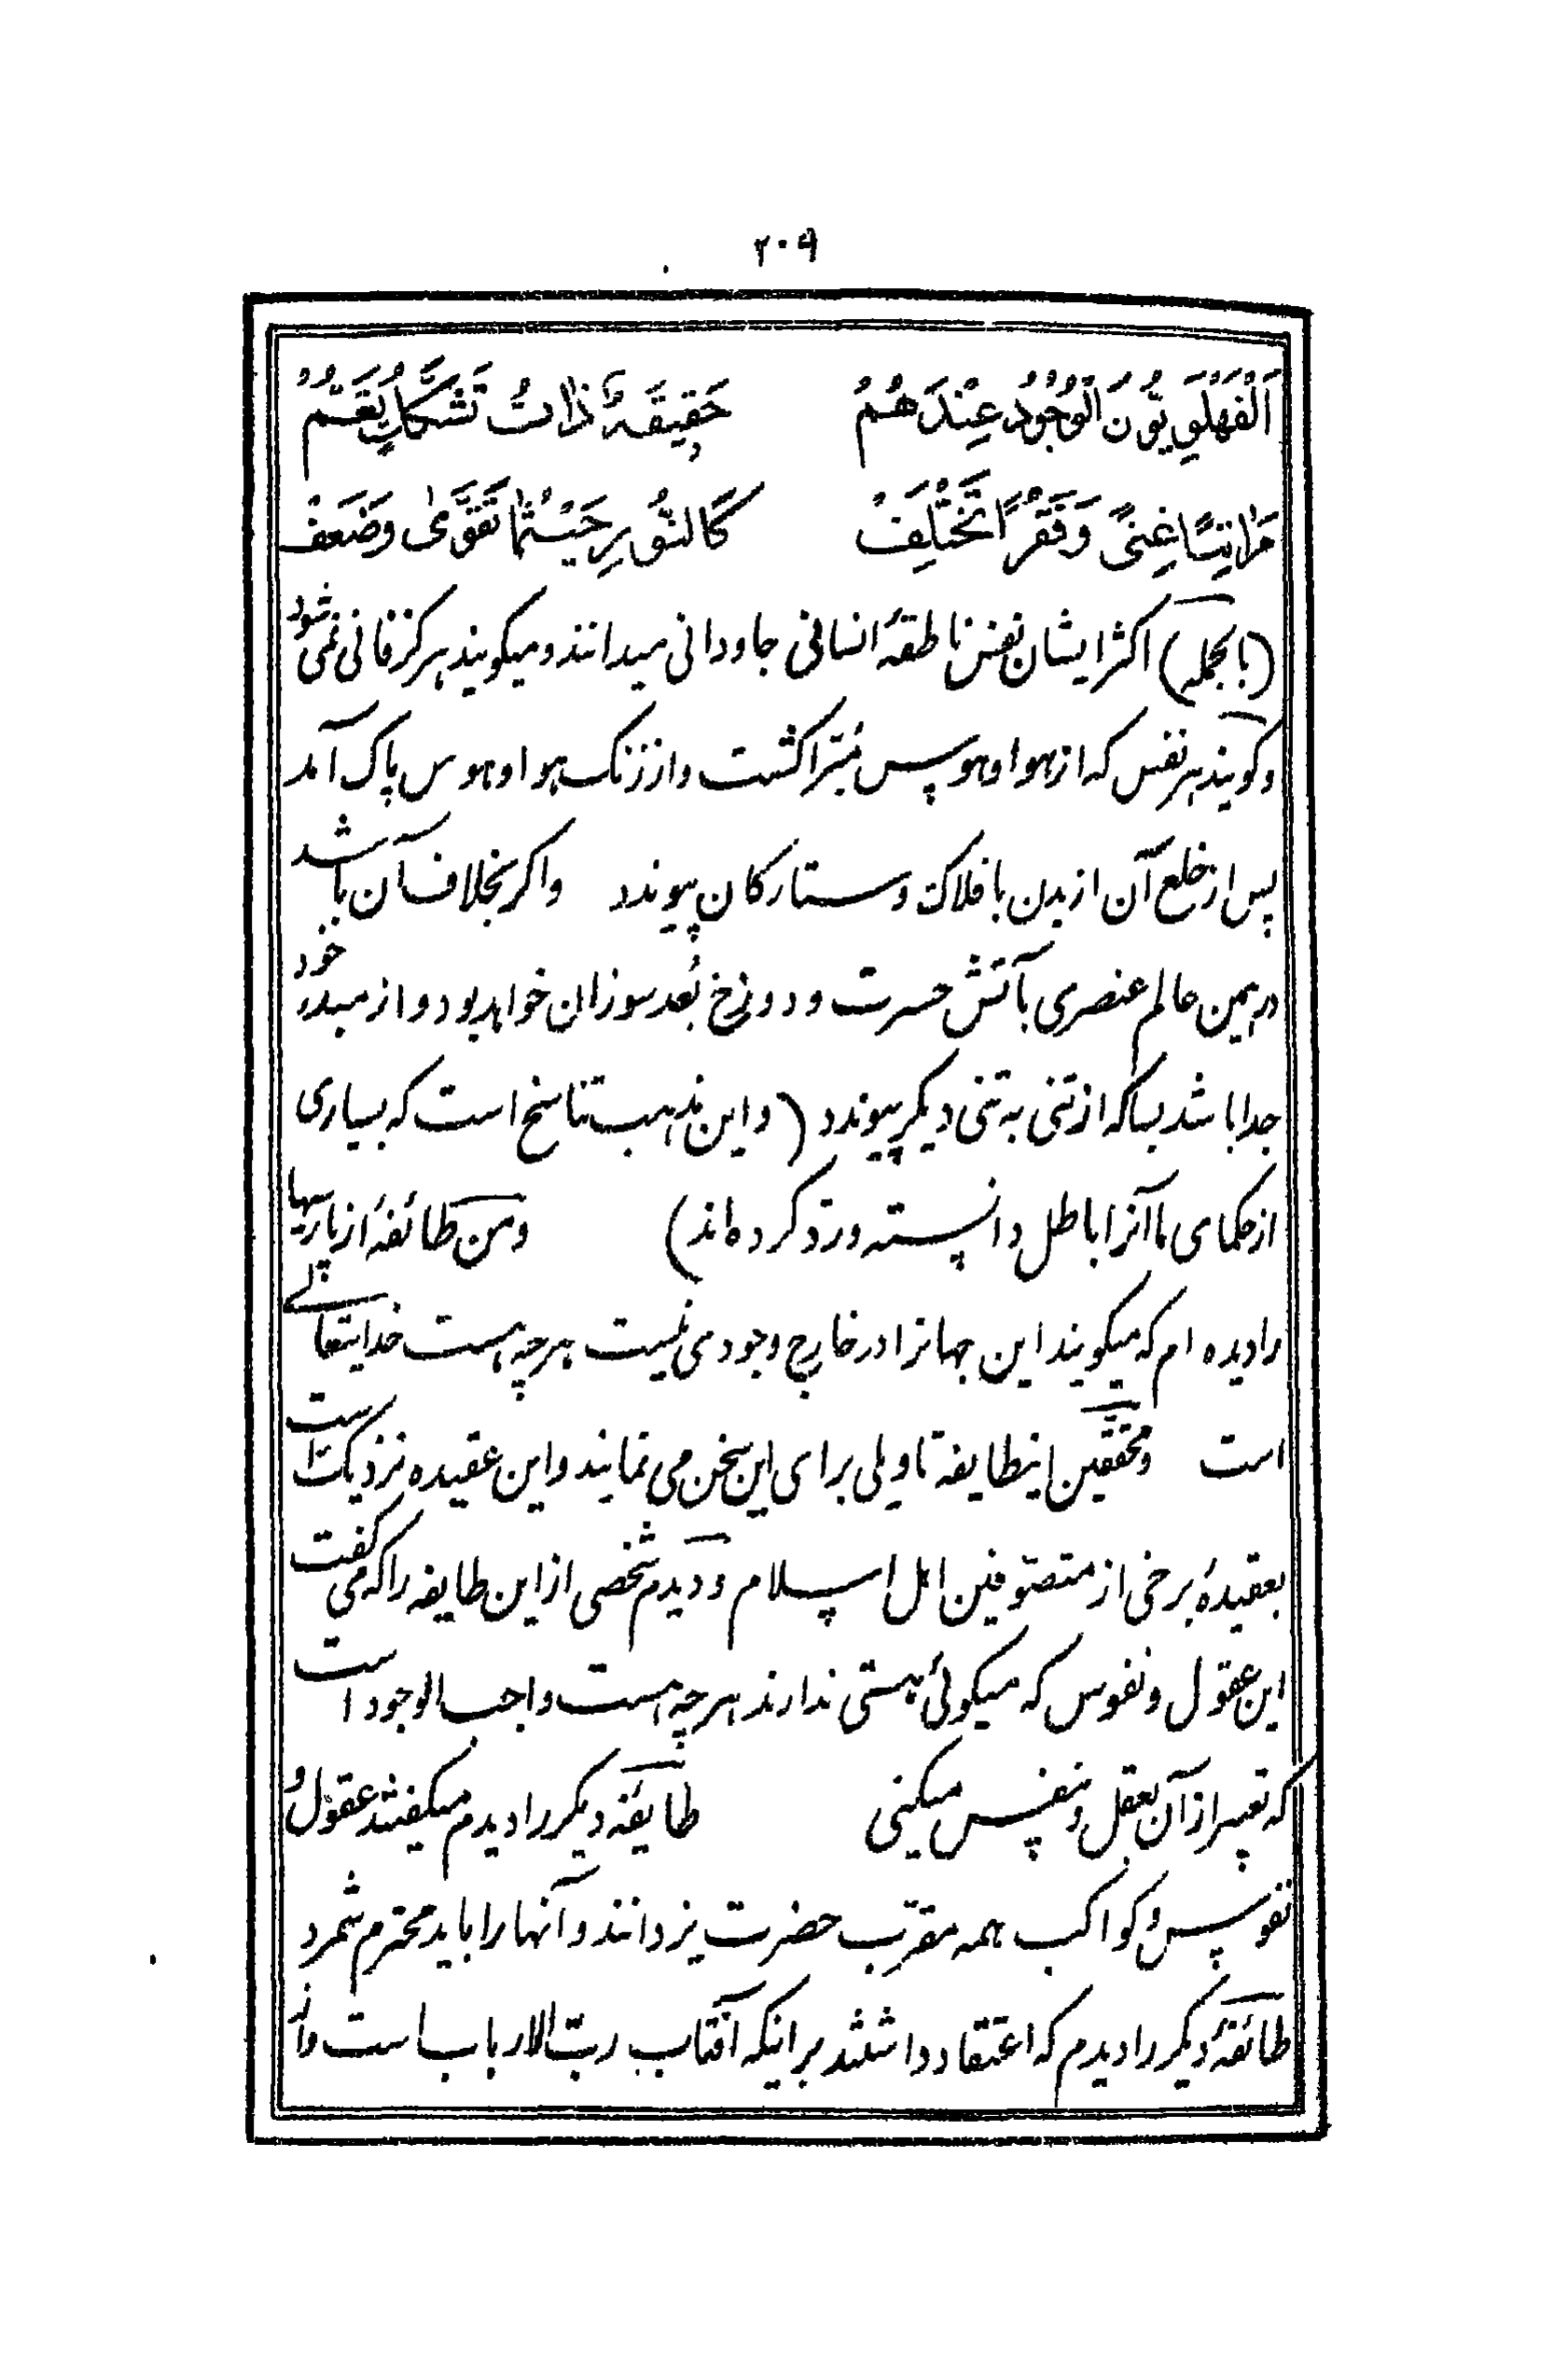 ۲۰۹
اَلْفَهْلَوِيُّونَ الْوُجُودُ عِنْدَهُمْ حَقِيقَةٌ ذَاتُ تَشَكُّكٍ تَعُمْ
مَرَاتِبًا غِنًى وَفَقْرًا تَخْتَلِفْ كَالنُّورِ حَيْثُمَا تَقَوَّىٰ وَضَعَفْ
(بالجمله) اکثر ایشان نفس ناطقهٔ انسانی جاودانی میدانند و میکویند هرکز فانی نمی شود
و کویند هر نفس که از هوا و هوس مُبَرّا کشت و از زنک هوا و هوس پاک آمد
پس از خلع آن از بدن بافلاک و ستارکان پیوندد واکر بخلاف آن باشد
در همین عالم عنصری بآتش حسرت و دوزخ بُعد سوزان خواهد بود و از مبدء خود
جدا باشد بسا که از تنی به تنی دیکر پیوندد (و این مذهب تناسخ است که بسیاری
از حکمای ما آنرا باطل دانسته و ردّ کرده اند) و من طائفهٔ از پارسیها
را دیده ام که میکویند این جهانرا در خارج وجودی نیست هرچه هست خدایتعالی
است و محققین اینطایفه تاویلی برای این سخن می نمایند و این عقیده نزدیکتر است
بعقیدهٔ برخی از متصوّفین اهل اسلام و دیدم شخصی از این طایفه را که می کفت
این عقول و نفوس که میکوئی هستی ندارند هرچه هست واجب الوجود است
که تعبیر از آن بعقل و نفس میکنی طایفهٔ دیکر را دیدم میکفتند عقول و
نفوس و کواکب همه مقرّب حضرت یزدانند و آنها را باید محترم شمرد
طائفهٔ دیکر را دیدم که اعتقاد داشتند بر اینکه آفتاب ربّ الارباب است و از